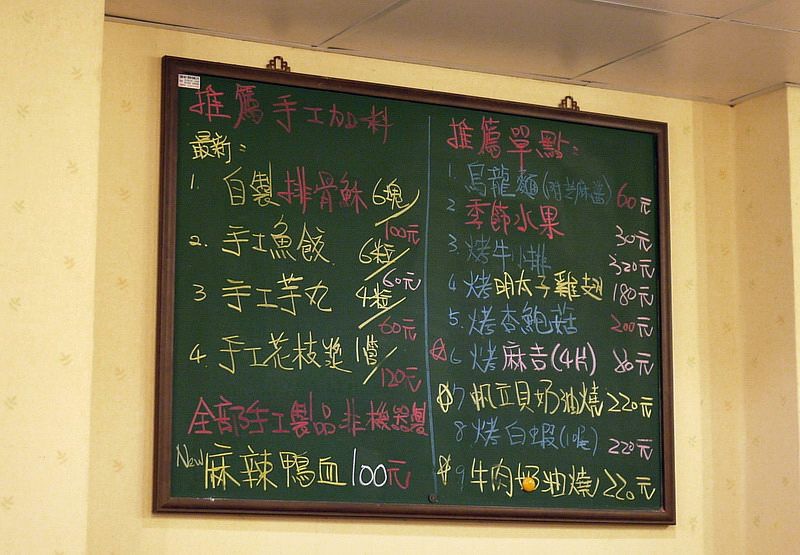 推薦手工加料
最新:
1. 自製排骨酥 6塊/100元
2. 手工魚餃 6粒/60元
3 手工芋丸 4粒/60元
4. 手工花枝漿 1管/120元
全部手工製品非機器製
New麻辣鴨血100元
推薦單點:
1. 烏龍麵(附芝麻醬) 60元
2 季節水果 30元
3. 烤牛小排 320元
4 烤明太子雞翅 180元
5. 烤杏鮑菇 200元
6 烤麻吉(4片) 80元
7 帆立貝奶油燒 220元
8 烤白蝦 220元
9 牛肉奶油燒 220元